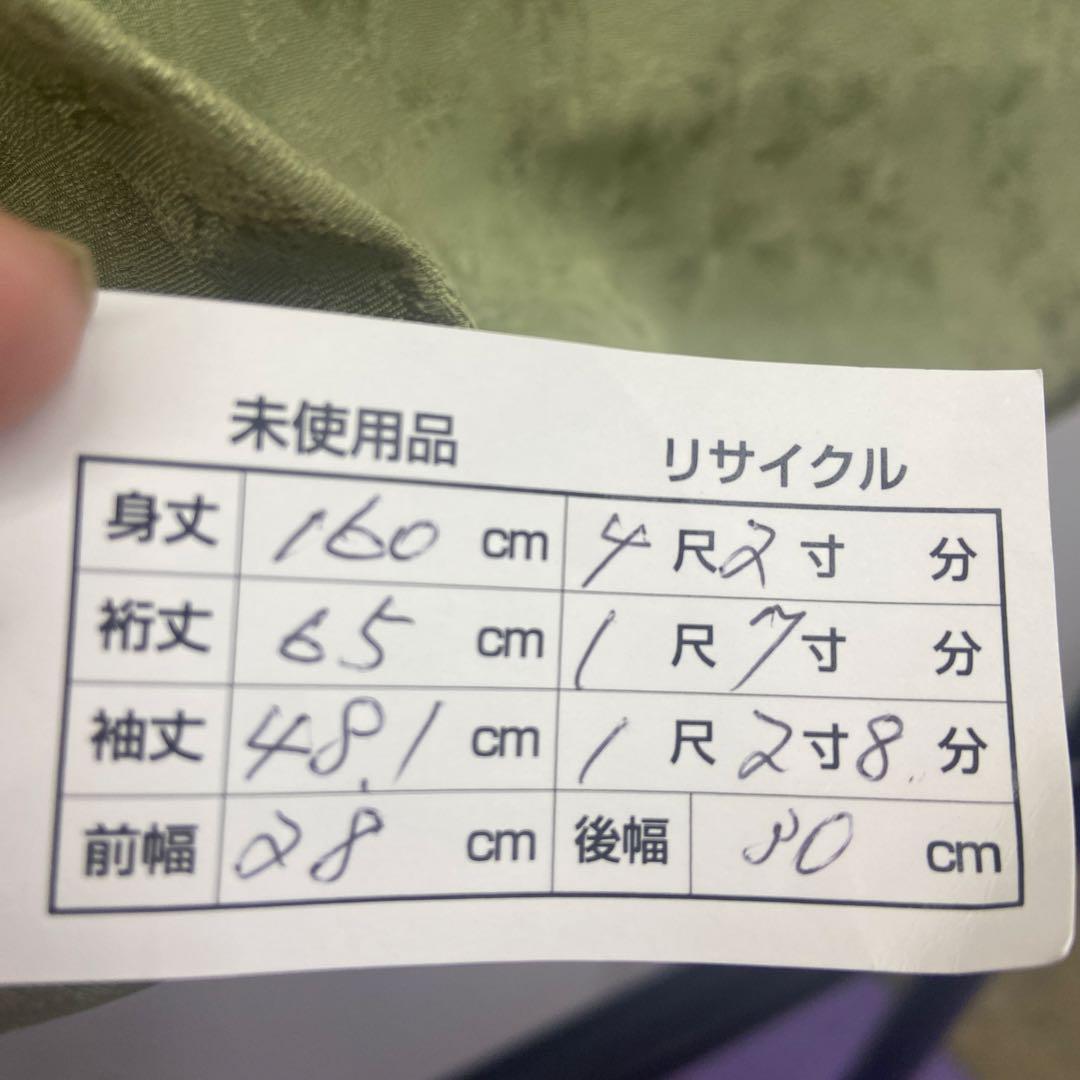 未使用品 リサイクル
身丈 160 cm 4 尺 2 寸 分
裄丈 65 cm 1 尺 7 寸 分
袖丈 48.1 cm 1 尺 2 寸 8 分
前幅 28 cm 後幅 30 cm